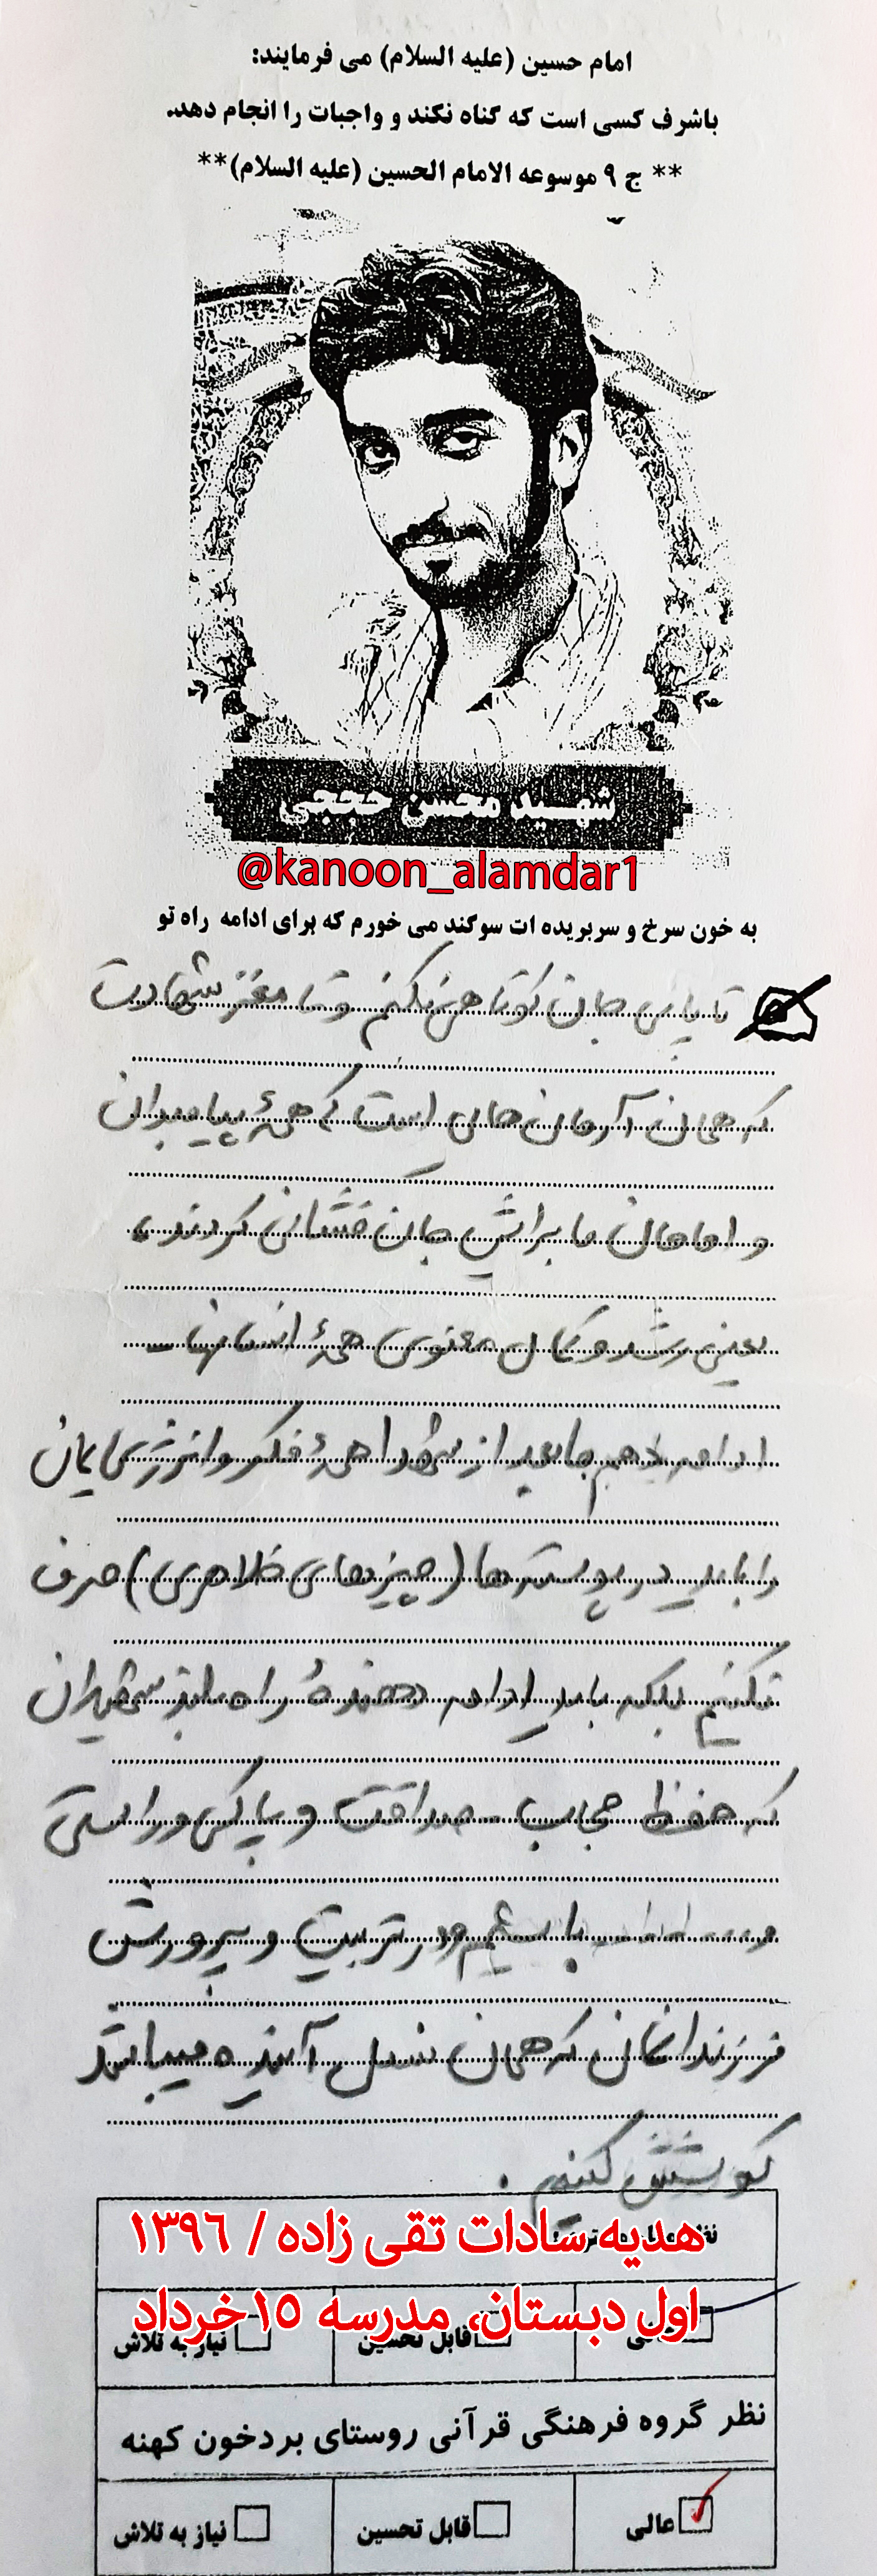 امام حسین (علیه السلام) می فرمایند:
باشرف کسی است که گناه نکند و واجبات را انجام دهد.
** ج ۹ موسوعه الامام الحسین (علیه السلام)**
شهید محسن حججی
@kanoon_alamdar1
به خون سرخ و سربریده ات سوگند می خورم که برای ادامه راه تو
تا پای جان کوتاهی نکنم و تا مغز شهادت
که همان آرمان هایی است که همهٔ پیامبران
و امامان ما برایش جان فشانی کردند،
یعنی رشد و کمال معنوی همهٔ انسانها
ادامه بدهم ما بعد از شهدا همهٔ فکر و انرژی مان
را نباید در پوسته ها (چیزهای ظاهری) صرف
نکنیم بلکه باید ادامه دهندهٔ راه شهیدان
که حفظ حجاب - صداقت و پاکی و راستی
باشیم و در تربیت و پرورش
فرزندانمان که همان نسل آینده میباشند
کوشش کنیم.
هدیه سادات تقی زاده / ۱۳۹۶
اول دبستان، مدرسه ۱۵خرداد
قابل تحسین
نیاز به تلاش
نظر گروه فرهنگی قرآنی روستای بردخون کهنه
عالی
قابل تحسین
نیاز به تلاش